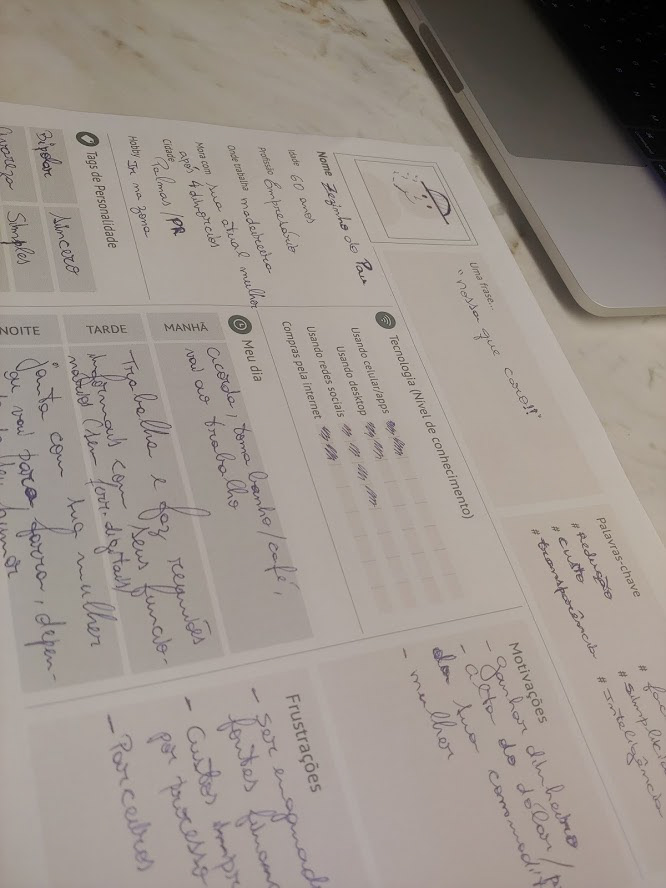 Nome Zezinho do Pau
Idade 60 anos
Profissão Empresário
Onde trabalha madeireira
Mora com sua atual mulher
após 4 divórcios
Cidade Palmas/PR
Hobby Ir na zona
Tags de Personalidade
Bipolar Sincero
Avareza Simples
Uma frase...
"nossa que caro!!"
Tecnologia (Nível de conhecimento)
Usando celular/apps
Usando desktop
Usando redes sociais
Compras pela Internet
Meu dia
MANHÃ
Acorda, toma banho/café,
vai ao trabalho
TARDE
Trabalha e faz reuniões
informais com seus funcio-
nários (sem ferr. digitais)
NOITE
Janta com sua mulher
ou vai para farra, depen-
humor
Palavras-chave
# Redução
# custo
# transparência
# Inteligência
Motivações
- ganhar dinheiro
- alta do dólar/
da sua
- mulher
Frustrações
- Ser
- Custos
por processo
- Parceiros